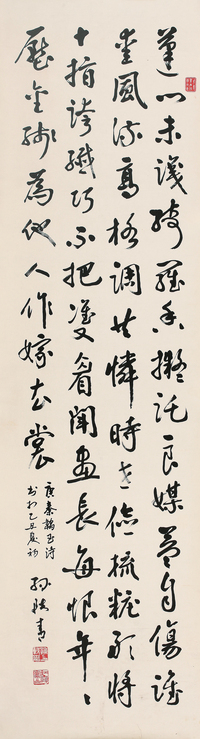 蓬门未識綺羅香擬託良媒益自傷誰
愛風流高格調共憐時世儉梳糚敢將
十指誇纖巧不把雙眉鬥畫長每恨年〻
壓金線為他人作嫁衣裳
唐秦韜玉詩
書於乙丑夏初
孫軼青